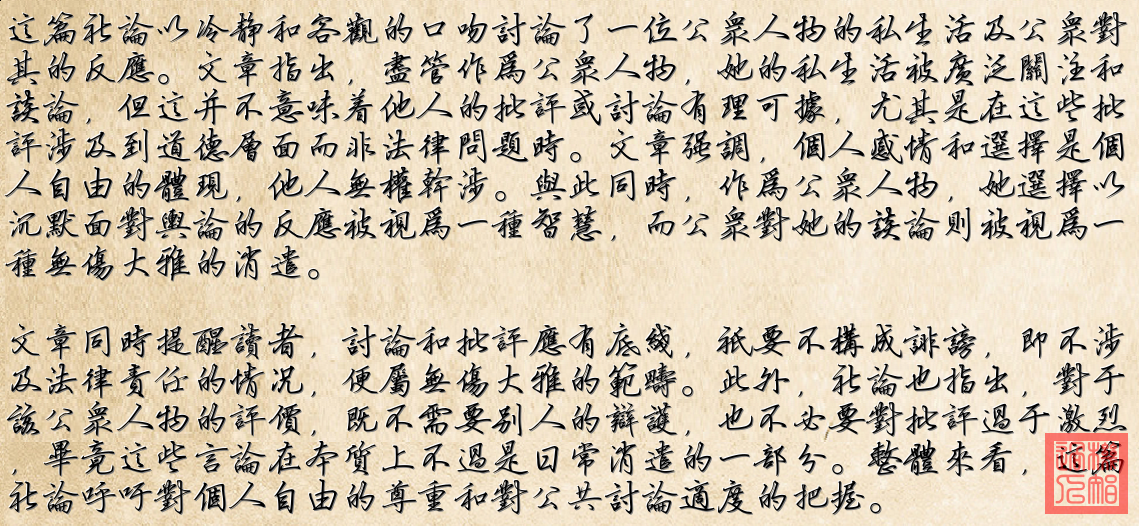 這篇社論以冷静和客觀的口吻討論了一位公衆人物的私生活及公衆對
其的反應。文章指出，盡管作爲公衆人物，她的私生活被廣泛關注和
談論，但這并不意味着他人的批評或討論有理可據，尤其是在這些批
評涉及到道德層面而非法律問題時。文章强調，個人感情和選擇是個
人自由的體現，他人無權幹涉。與此同時，作爲公衆人物，她選擇以
沉默面對輿論的反應被視爲一種智慧，而公衆對她的談論則被視爲一
種無傷大雅的消遣。
文章同時提醒讀者，討論和批評應有底綫，衹要不構成誹謗，即不涉
及法律責任的情况，便屬無傷大雅的範疇。此外，社論也指出，對于
該公衆人物的評價，既不需要别人的辯護，也不必要對批評過于激烈
，畢竟這些言論在本質上不過是日常消遣的一部分。整體來看，這篇
社論呼吁對個人自由的尊重和對公共討論適度的把握。